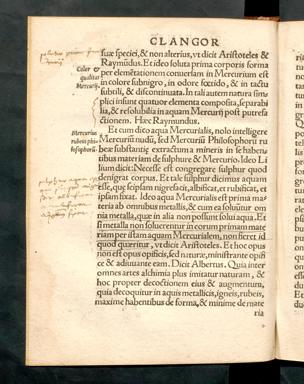 CLANGOR
suæ speciei, & non alterius, vt dicit Aristoteles &
Raymūdus. Et ideo soluta prima corporis forma
per elemētationem conuertam in Mercurium est
in colore subnigro, in odore fœxido, & in tactu
subtili, & discontinuata. In tali autem natura sim=
plici insunt quatuor elementa composita, separabi
lia, & resolubilia in aquam Mercurij post putrefa
ctionem. Hæc Raymundus.
Color &
qualitas
Mercurij.
Et cum dico aqua Mercurialis, nolo intelligere
Mercuriū nudū, sed Mercuriū Philosophorū ru
beæ substantiæ extractum à mineris in se habenti
tibus materiam de sulphure & Mercurio. Ideo Li
lium dicit: Necesse est congregare sulphur quod
denigrat corpus. Et tale sulphur dicimus aquam
esse, quę seipsam nigrescit, albificat, et rubificat, et
ipsam fixat. Ideo aqua Mercurialis est prima ma=
teria ab omnibus metallis, & cum ea soluitur om
nia metalla, quæ in alia non possunt solui aqua. Et
si metalla non soluerentur in eorum primam mate
riam per istam aquam Mercurialem, non fieret id
quod quæritur, vt dicit Aristoteles. Et hoc opus
non est opus opificis, sed naturæ, ministrante opifi
ce & adiuuante eam. Dicit Albertus. Quia inter
omnes artes alchimia plus imitatur naturam, &
hoc propter decoctionem eius & augmentum,
quia decoquitur in aquis metallicis, igneis, rubeis,
maxime habentibus de forma, & minime de mate
ria
Mercurius
rubeus phi=
losophorū.